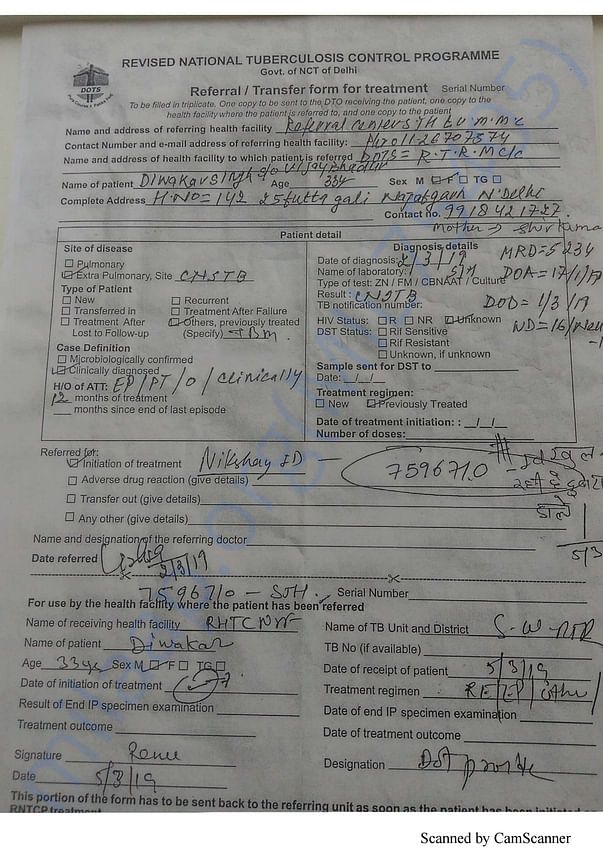 REVISED NATIONAL TUBERCULOSIS CONTROL PROGRAMME
Govt. of NCT of Delhi
DOTS
Referral / Transfer form for treatment Serial Number
To be filled in triplicate. One copy to be sent to the DTO receiving the patient, one copy to the
health facility where the patient is referred to, and one copy to the patient
Name and address of referring health facility
Contact Number and e-mail address of referring health facility:
Name and address of health facility to which patient is referred DOTS = R.T.R.M C/c
Name of patient Diwakar Singh s/o Age 33y Sex M F TG
Complete Address H.NO = 142 gali Najafgarh N Delhi
Contact no. 9918421727
mother →
Patient detail
Site of disease
Pulmonary
Extra Pulmonary, Site CNSTB
Type of Patient
New Recurrent
Transferred in Treatment After Failure
Treatment After Others, previously treated
Lost to Follow-up (Specify) TBM
Case Definition
Microbiologically confirmed
Clinically diagnosed
H/O of ATT: EP/PT/O/Clinically
12 months of treatment
months since end of last episode
Diagnosis details
Date of diagnosis: 2/3/19
Name of laboratory: SJH
Type of test: ZN / FM / CBNAAT / Culture
Result: CNSTB
TB notification number:
HIV Status: R NR Unknown
DST Status: Rif Sensitive
Rif Resistant
Unknown, if unknown
Sample sent for DST to
Date: _/_/_
Treatment regimen:
New Previously Treated
Date of treatment initiation: : _/_/_
Number of doses:
MRD = 5234
DOA = 17/1/19
DOD = 1/3/19
WD = 16/
Referred for:
Initiation of treatment Nikshay ID — 7596710
Adverse drug reaction (give details)
Transfer out (give details)
Any other (give details)
5/3
Name and designation of the referring doctor
Date referred 2/3/19
7596710 - SJH. Serial Number
For use by the health facility where the patient has been referred
Name of receiving health facility RHTC NJF
Name of patient Diwakar
Age 33yr Sex M F TG
Date of initiation of treatment
Result of End IP specimen examination
Treatment outcome
Signature Renu
Date 5/3/19
Name of TB Unit and District S-W-
TB No (if available)
Date of receipt of patient 5/3/19
Treatment regimen RE/EP/
Date of end IP specimen examination
Date of treatment outcome
Designation Dot
This portion of the form has to be sent back to the referring unit as soon as the patient has been initiated
RNTCP treatment
Scanned by CamScanner